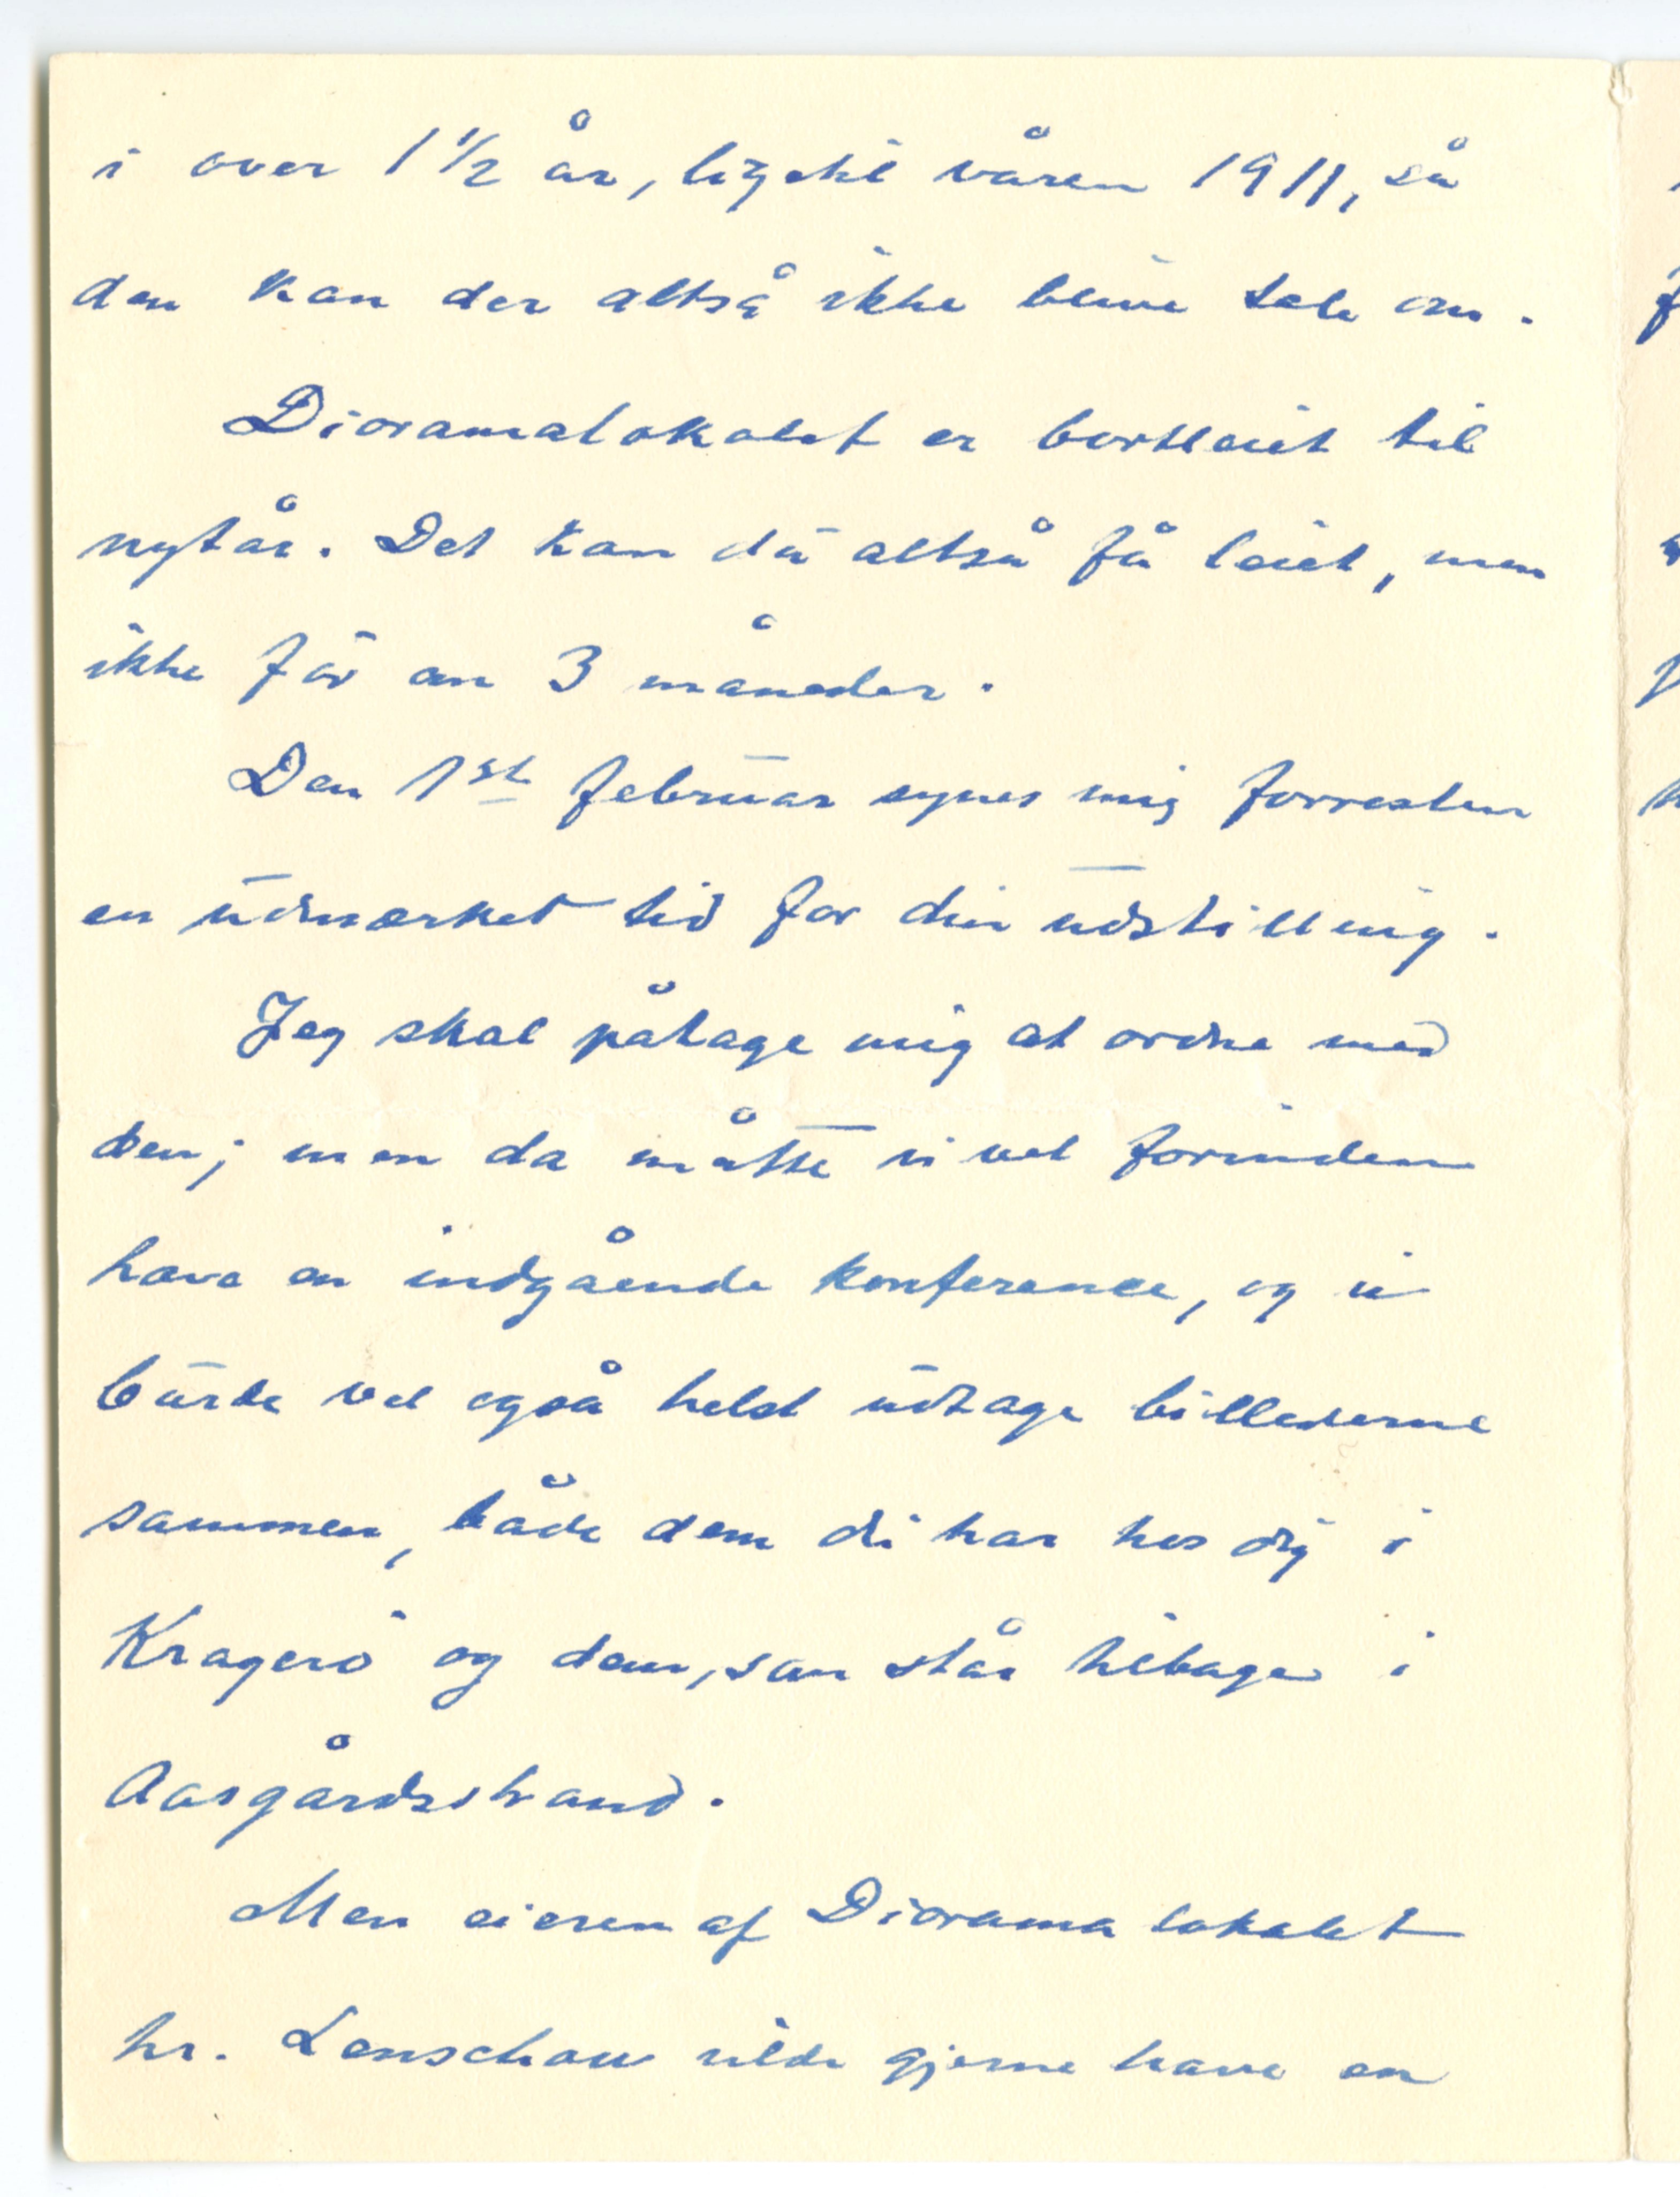 i over 1 1/2 år, ligetil våren 1911, så
den kan der altså ikke blive tale om.
Dioramalokalet er bortleiet til
nytår. Det kan du altså få leiet, men
ikke før om 3 måneder.
Den 1st februar synes mig forresten
en udmærket tid for din udstilling.
Jeg skal påtage mig at ordne med
den; men da måtte vi vel forinden
have en indgående konferance, og vi
burde vel også helst udtage billederne
sammen, både dem du har hos dig i
Kragerø og dem, som står tilbage i
Aasgårdsstrand.
Men eieren af Diorama lokalet
hr. Lenschow vilde gjerne have en